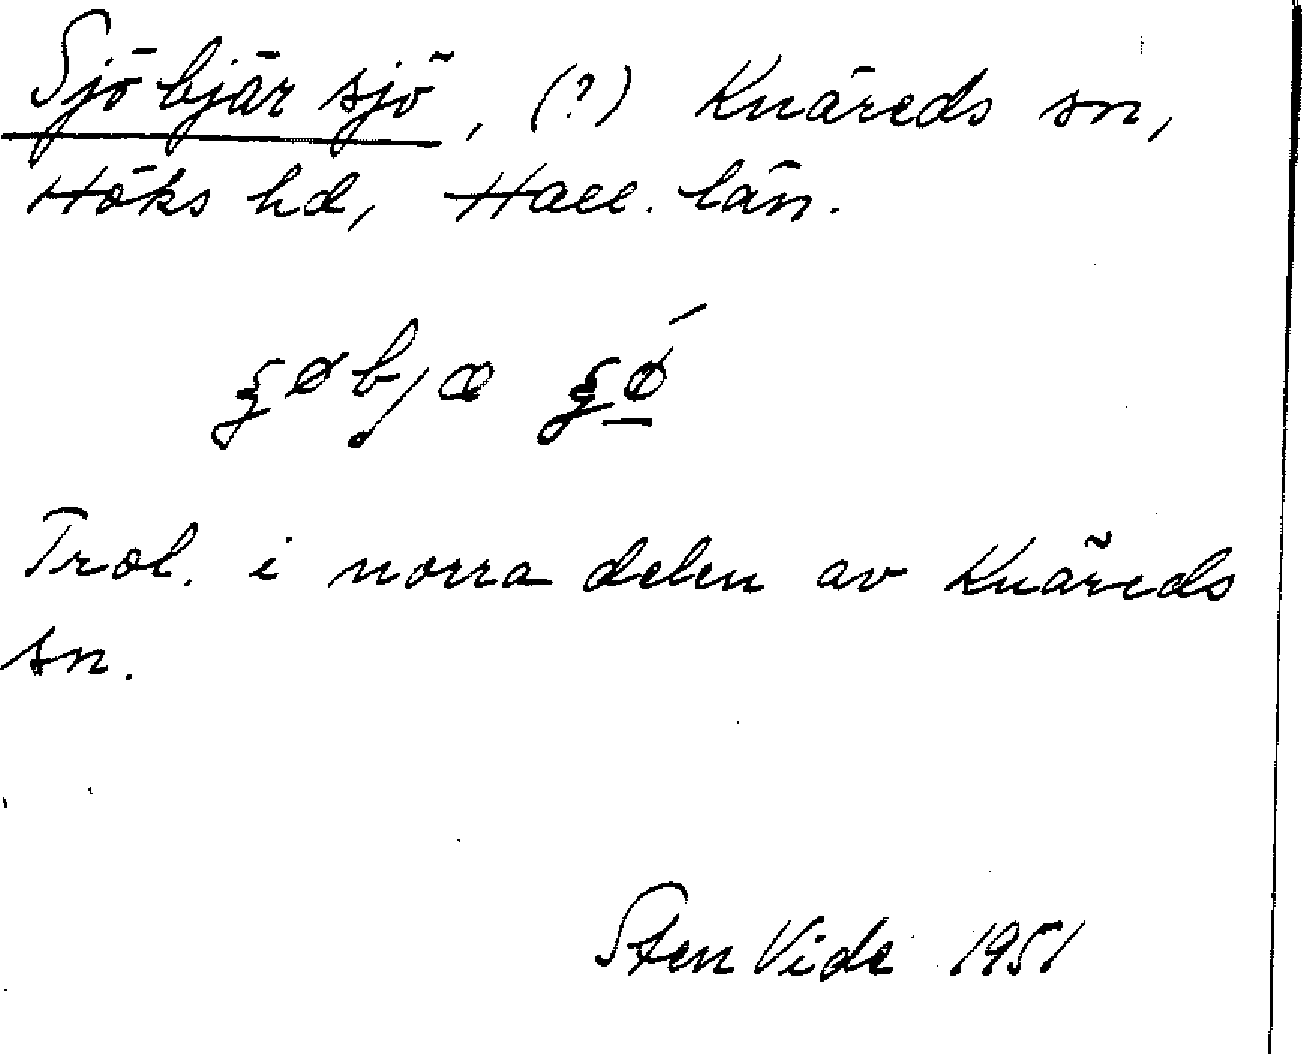 Sjöbjär sjö, (?) Knäreds sn,
Höks hd, Hall. län.
Trol. i norra delen av Knäreds
sn.
Sten Vide 1951